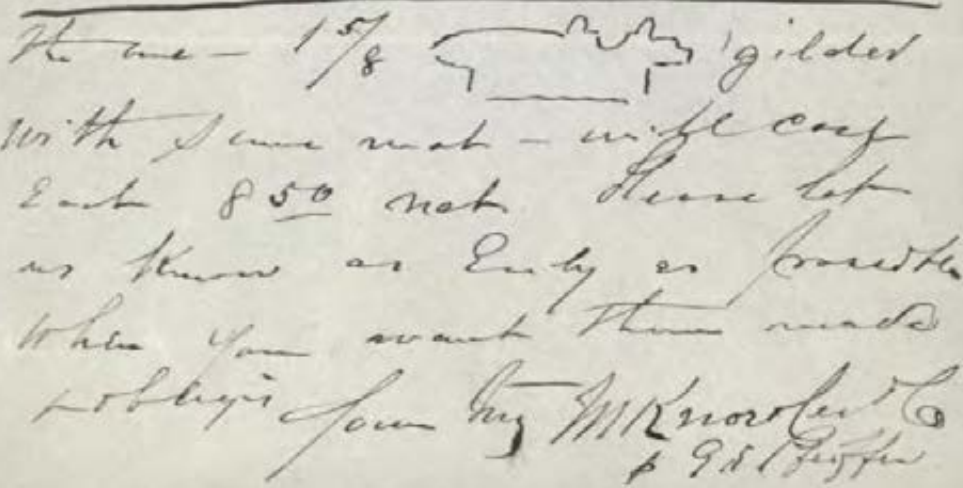 The one - 1 5/8 gilded
with same mat - will cost
Each 8 50 net Please let
us Know as Early as possible
when you want them made
& oblige Yours Try M Knoedler & Co
p G E Pfeiffer